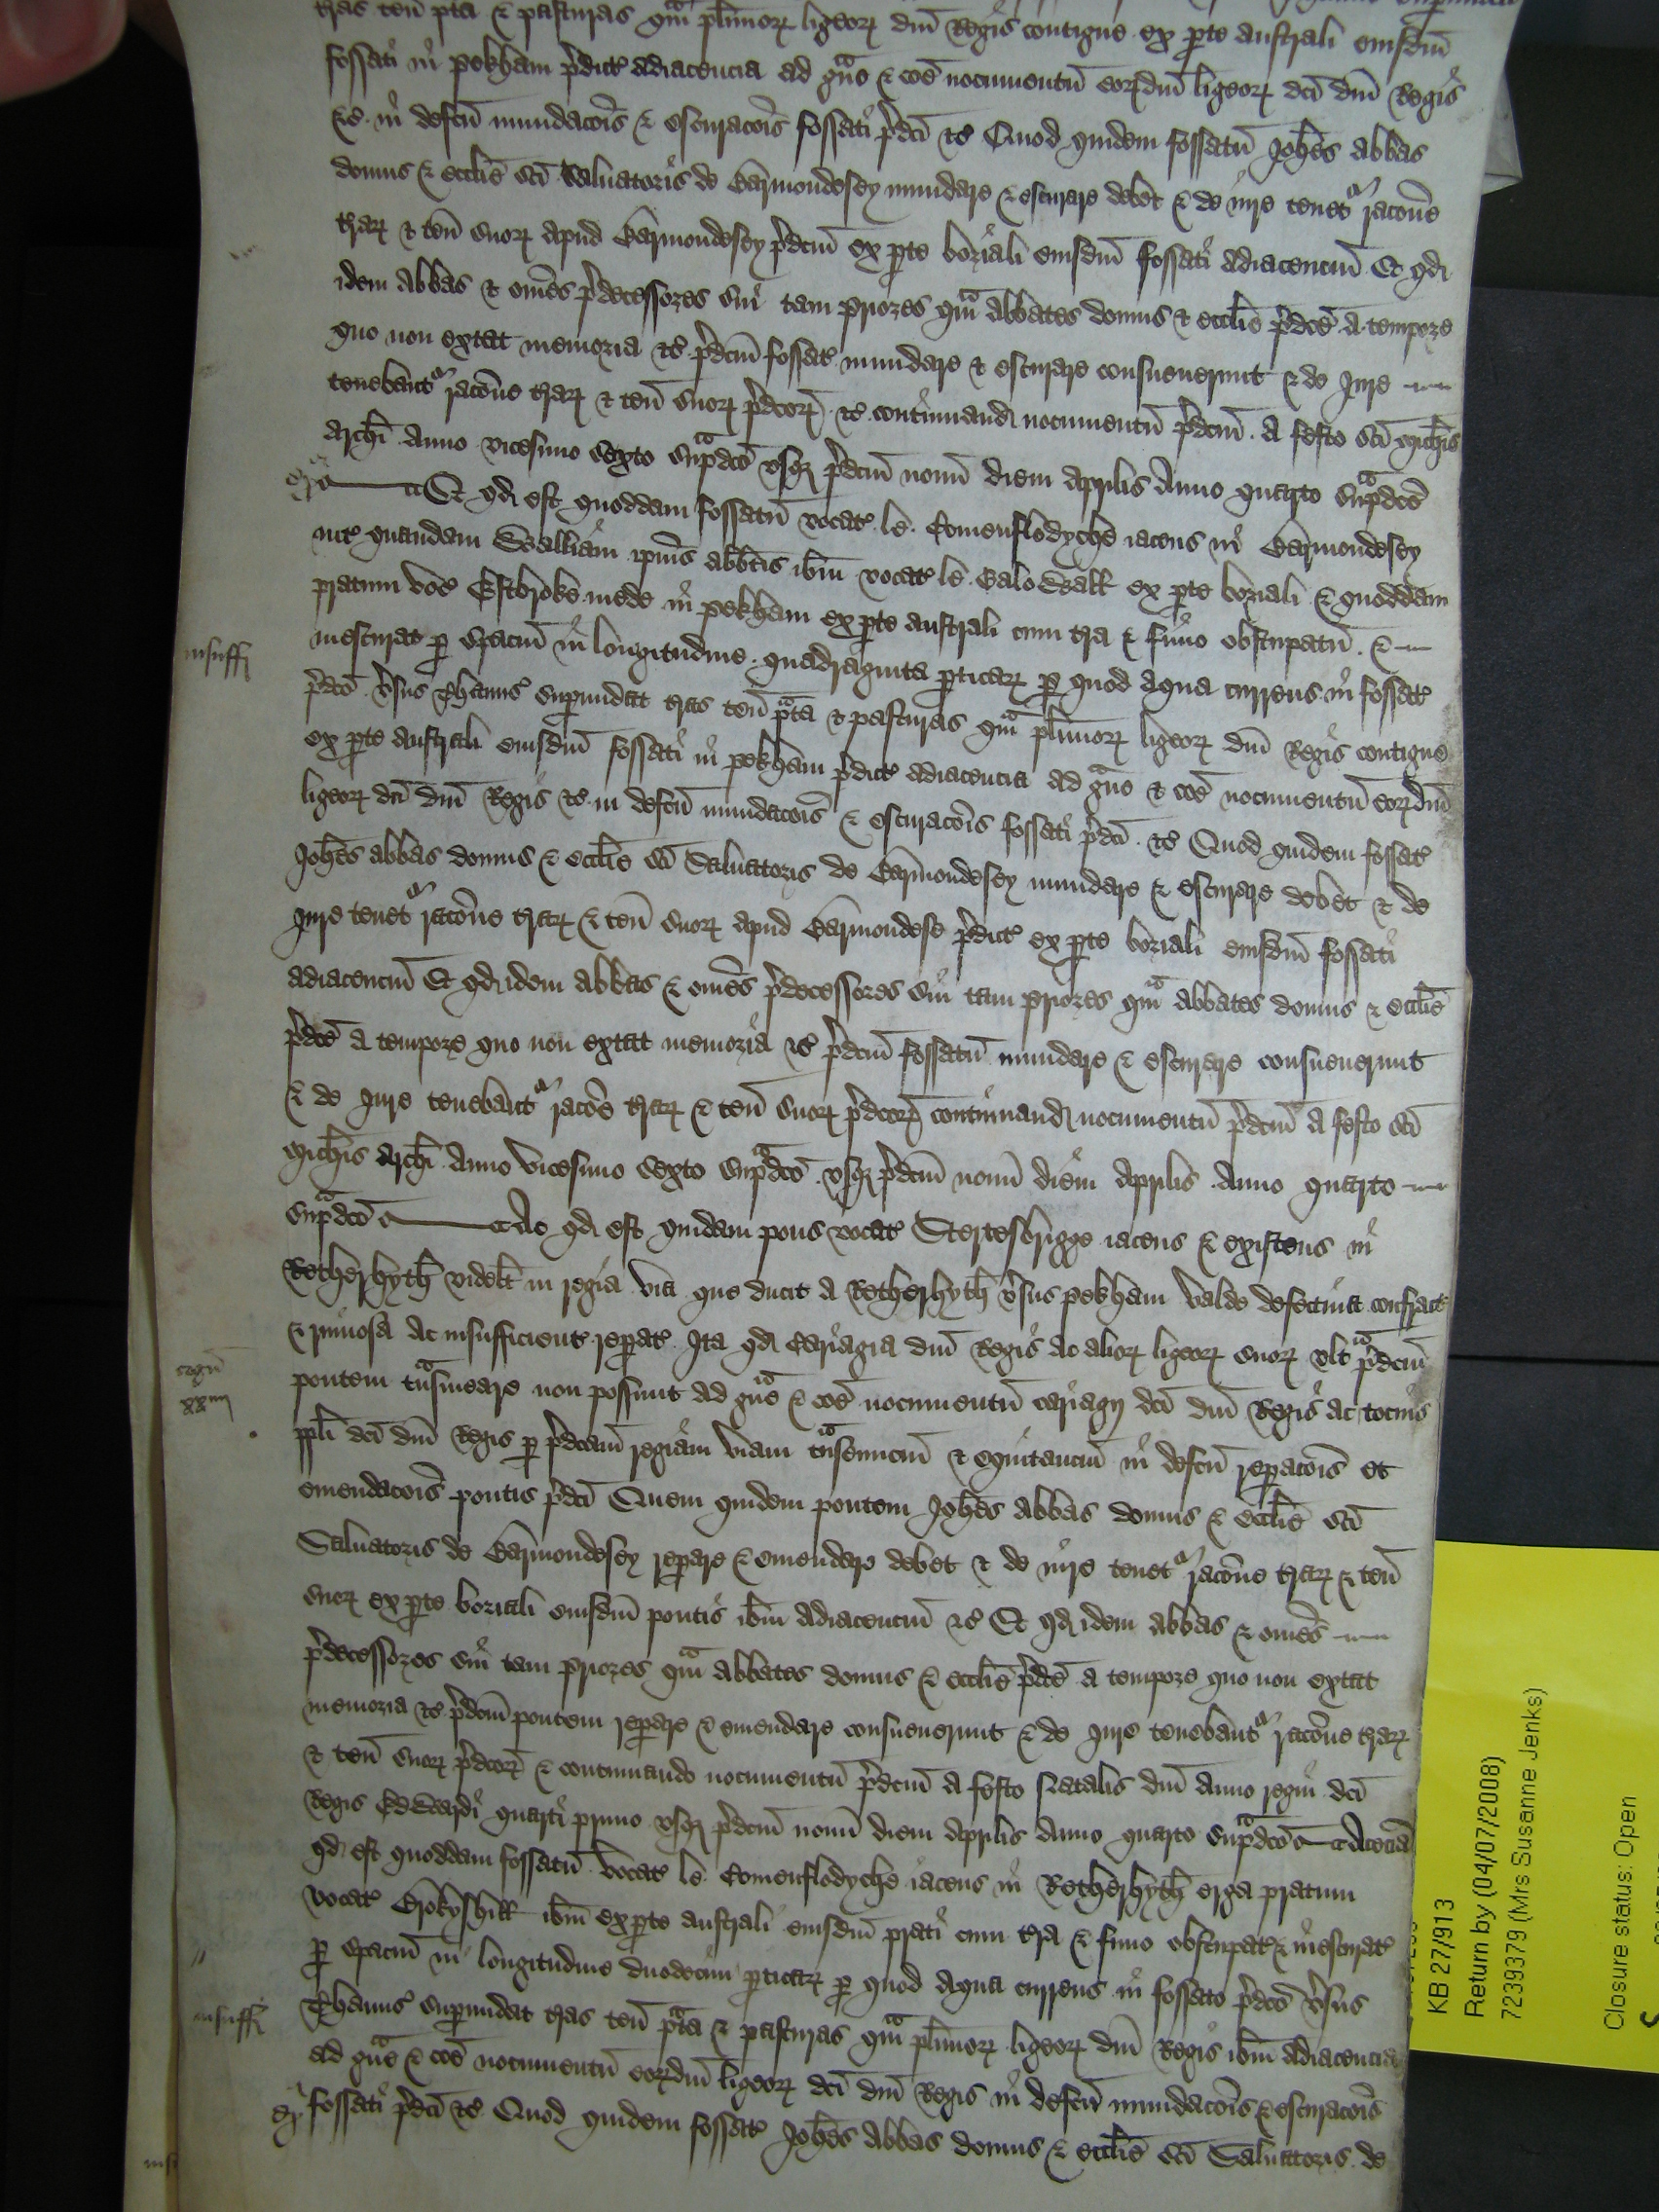 t̃ras ten̄ p̃ta & pasturas qm̃ plimoꝝ ligeoꝝ dn̄i Regis contigue ex ꝑte australi eiusdm̄
fossati in Pekham p̃dict̃ adiacencia ad g̃ue & coē nocumentū eoꝝdm̄ ligeoꝝ dc̄i dn̄i Regis
&c̃ in defc̄u mundac̄ois & escurac̄ois fossati p̃dc̄i &c̃ Quod quidem fossatū Joh̄es Abbas
domus & eccl̄ie sc̄i Saluatoris de Barmondesey mundare & escurare debet & de iure tenet̃ rac̄one
t̃raꝝ & ten̄ suoꝝ apud Barmondesey p̃dc̄m ex ꝑte boriali eiusdm̄ fossati adiacenciū Et qd̃
idem Abbas & om̄es p̃decessores sui tam priores qm̃ abbates domus & eccl̄ie p̃dc̄e a tempore
quo non extat memoria &c̃ p̃dc̄m fossat̃ mundare & escurare consueuerunt & de Jure
tenebant̃ rac̄one t̃raꝝ & ten̄ suoꝝ p̃dc̄oꝝ &c̃ continuand̃ nocumentū p̃dc̄m a festo sc̄i Mich̄is
Arch̄i Anno vicesimo sexto sup̃dc̄o vsqꝫ p̃dc̄m nonū diem Aprilis Anno quarto sup̃dc̄o
Et qd̃ est quoddam fossatū vocat̃ le Comenflodyche iacens in Barmondesey
int̃ quandam Walliam ip̄ius Abb̄tis ib̄m vocat̃ le Balo Wall ex ꝑte boriali & quoddam
pratum voc̃ Estbroke mede in Pekham ex ꝑte australi cum t̃ra & fimo obstupatū &
insuff̃
inescurat̃ ꝑ spaciū in longitudine quadraginta ꝑticaꝝ ꝑ quod aqua currens in fossat̃
p̃dc̄o ṽsus Thamis̃ suꝑundat t̃ras ten̄ p̃ta & pasturas qm̃ plimoꝝ ligeoꝝ dn̄i Regis contigue
ex ꝑte australi eiusdm̄ fossati in Pekham p̃dict̃ adiacencia ad g̃ue & coē nocumentū eoꝝdm̄
ligeoꝝ dc̄i dn̄i Regis &c̃ in defc̄u mundac̄ois & escurac̄ois fossati p̃dc̄i &c̃ Quod quidem fossat̃
Joh̄es abbas domus & eccl̄ie sc̄i Saluatoris de Barmondesey mundare & escurare debet & de
Jure tenet̃ rac̄one t̃raꝝ & ten̄ suoꝝ apud Barmondese p̃dict̃ ex ꝑte boriali eiusdm̄ fossati
adiacenciū Et qd̃ idem abbas & om̄es p̃decessores sui tam priores qm̃ abbates domus & eccl̄ie
p̃dc̄e a tempore quo non extat memoria &c̃ p̃dc̄m fossatū mundare & escurare consueuerunt
& de Jure tenebant̃ rac̄one t̃raꝝ & ten̄ suoꝝ p̃dc̄oꝝ continuand̃ nocumentū p̃dc̄m a festo sc̄i
Mich̄is Arch̄i Anno vicesimo sexto sup̃dc̄o vsqꝫ p̃dc̄m nonū diem Aprilis Anno quarto
sup̃dc̄o Ac qd̃ est quidam pons vocat̃ Stertesbrigge iacens & existens in
Retherhyth̄ videlt̃ in regia via que ducit a Retherhyth̄ ṽsus Pekham valde defectiua confract̃
& ruinosa ac insufficient̃ reꝑat̃ Ita qd̃ Cariagia dn̄i Regis ac alioꝝ ligeoꝝ suoꝝ vlt̃ p̃dc̄m
pontem t̃nsmeare non possunt ad g̃ue & coē nocumentū cariagij dc̄i dn̄i Regis ac tocius
ppl̄i dc̄i dn̄i Regis ꝑ p̃dc̄am regiam viam t̃nseunciū & equitanciū in defc̄u reꝑac̄ois et
emendac̄ois pontis p̃dc̄i Quem quidem pontem Joh̄es Abbas domus & eccl̄ie sc̄i
Saluatoris de Barmondesey reꝑare & emendare debet & de iure tenet̃ rac̄one t̃raꝝ & ten̄
suoꝝ ex ꝑte boriali eiusdm̄ pontis ib̄m adiacenciū &c̃ Et qd̃ idem abbas & om̄es
p̃decessores sui tam priores qm̃ abbates domus & eccl̄ie p̃dc̄e a tempore quo non extat
memoria &c̃ p̃dc̄m pontem reꝑare & emendare consueuerunt & de Jure tenebant̃ rac̄one t̃raꝝ
& ten̄ suoꝝ p̃dc̄oꝝ & continuando nocumentū p̃dc̄m a festo Natalis dn̄i Anno regni dc̄i
Regis Edwardi quarti primo vsqꝫ p̃dc̄m nonū diem Aprilis Anno quarto sup̃dc̄o Ac eciā
qd̃ est quoddam fossatū vocat̃ le Comenflodyche iacens in Retherhyth̄ erga pratum
vocat̃ Crokyshill ib̄m ex ꝑte australi eiusdm̄ prati cum t̃ra & fimo obstupat̃ & inescurat̃
ꝑ spaciū in longitudine duodecim ꝑticaꝝ ꝑ quod aqua currens in fossato p̃dc̄o ṽsus
insuff̃
Thamis̃ suꝑundat t̃ras ten̄ p̃ta & pasturas qm̃ plimoꝝ ligeoꝝ dn̄i Regis ib̄m adiacencia
ad g̃ue & coē nocumentū eoꝝdm̄ ligeoꝝ dc̄i dn̄i Regis in defc̄u mundac̄ois & escurac̄ois
fossati p̃dc̄i &c̃ Quod quidem fossat̃ Joh̄es Abbas domus & eccl̄ie sc̄i Saluatoris de
KB 27/913
Return by (04/07/2008)
7239379 (Mrs Susanne Jenks)
Closure status: Open